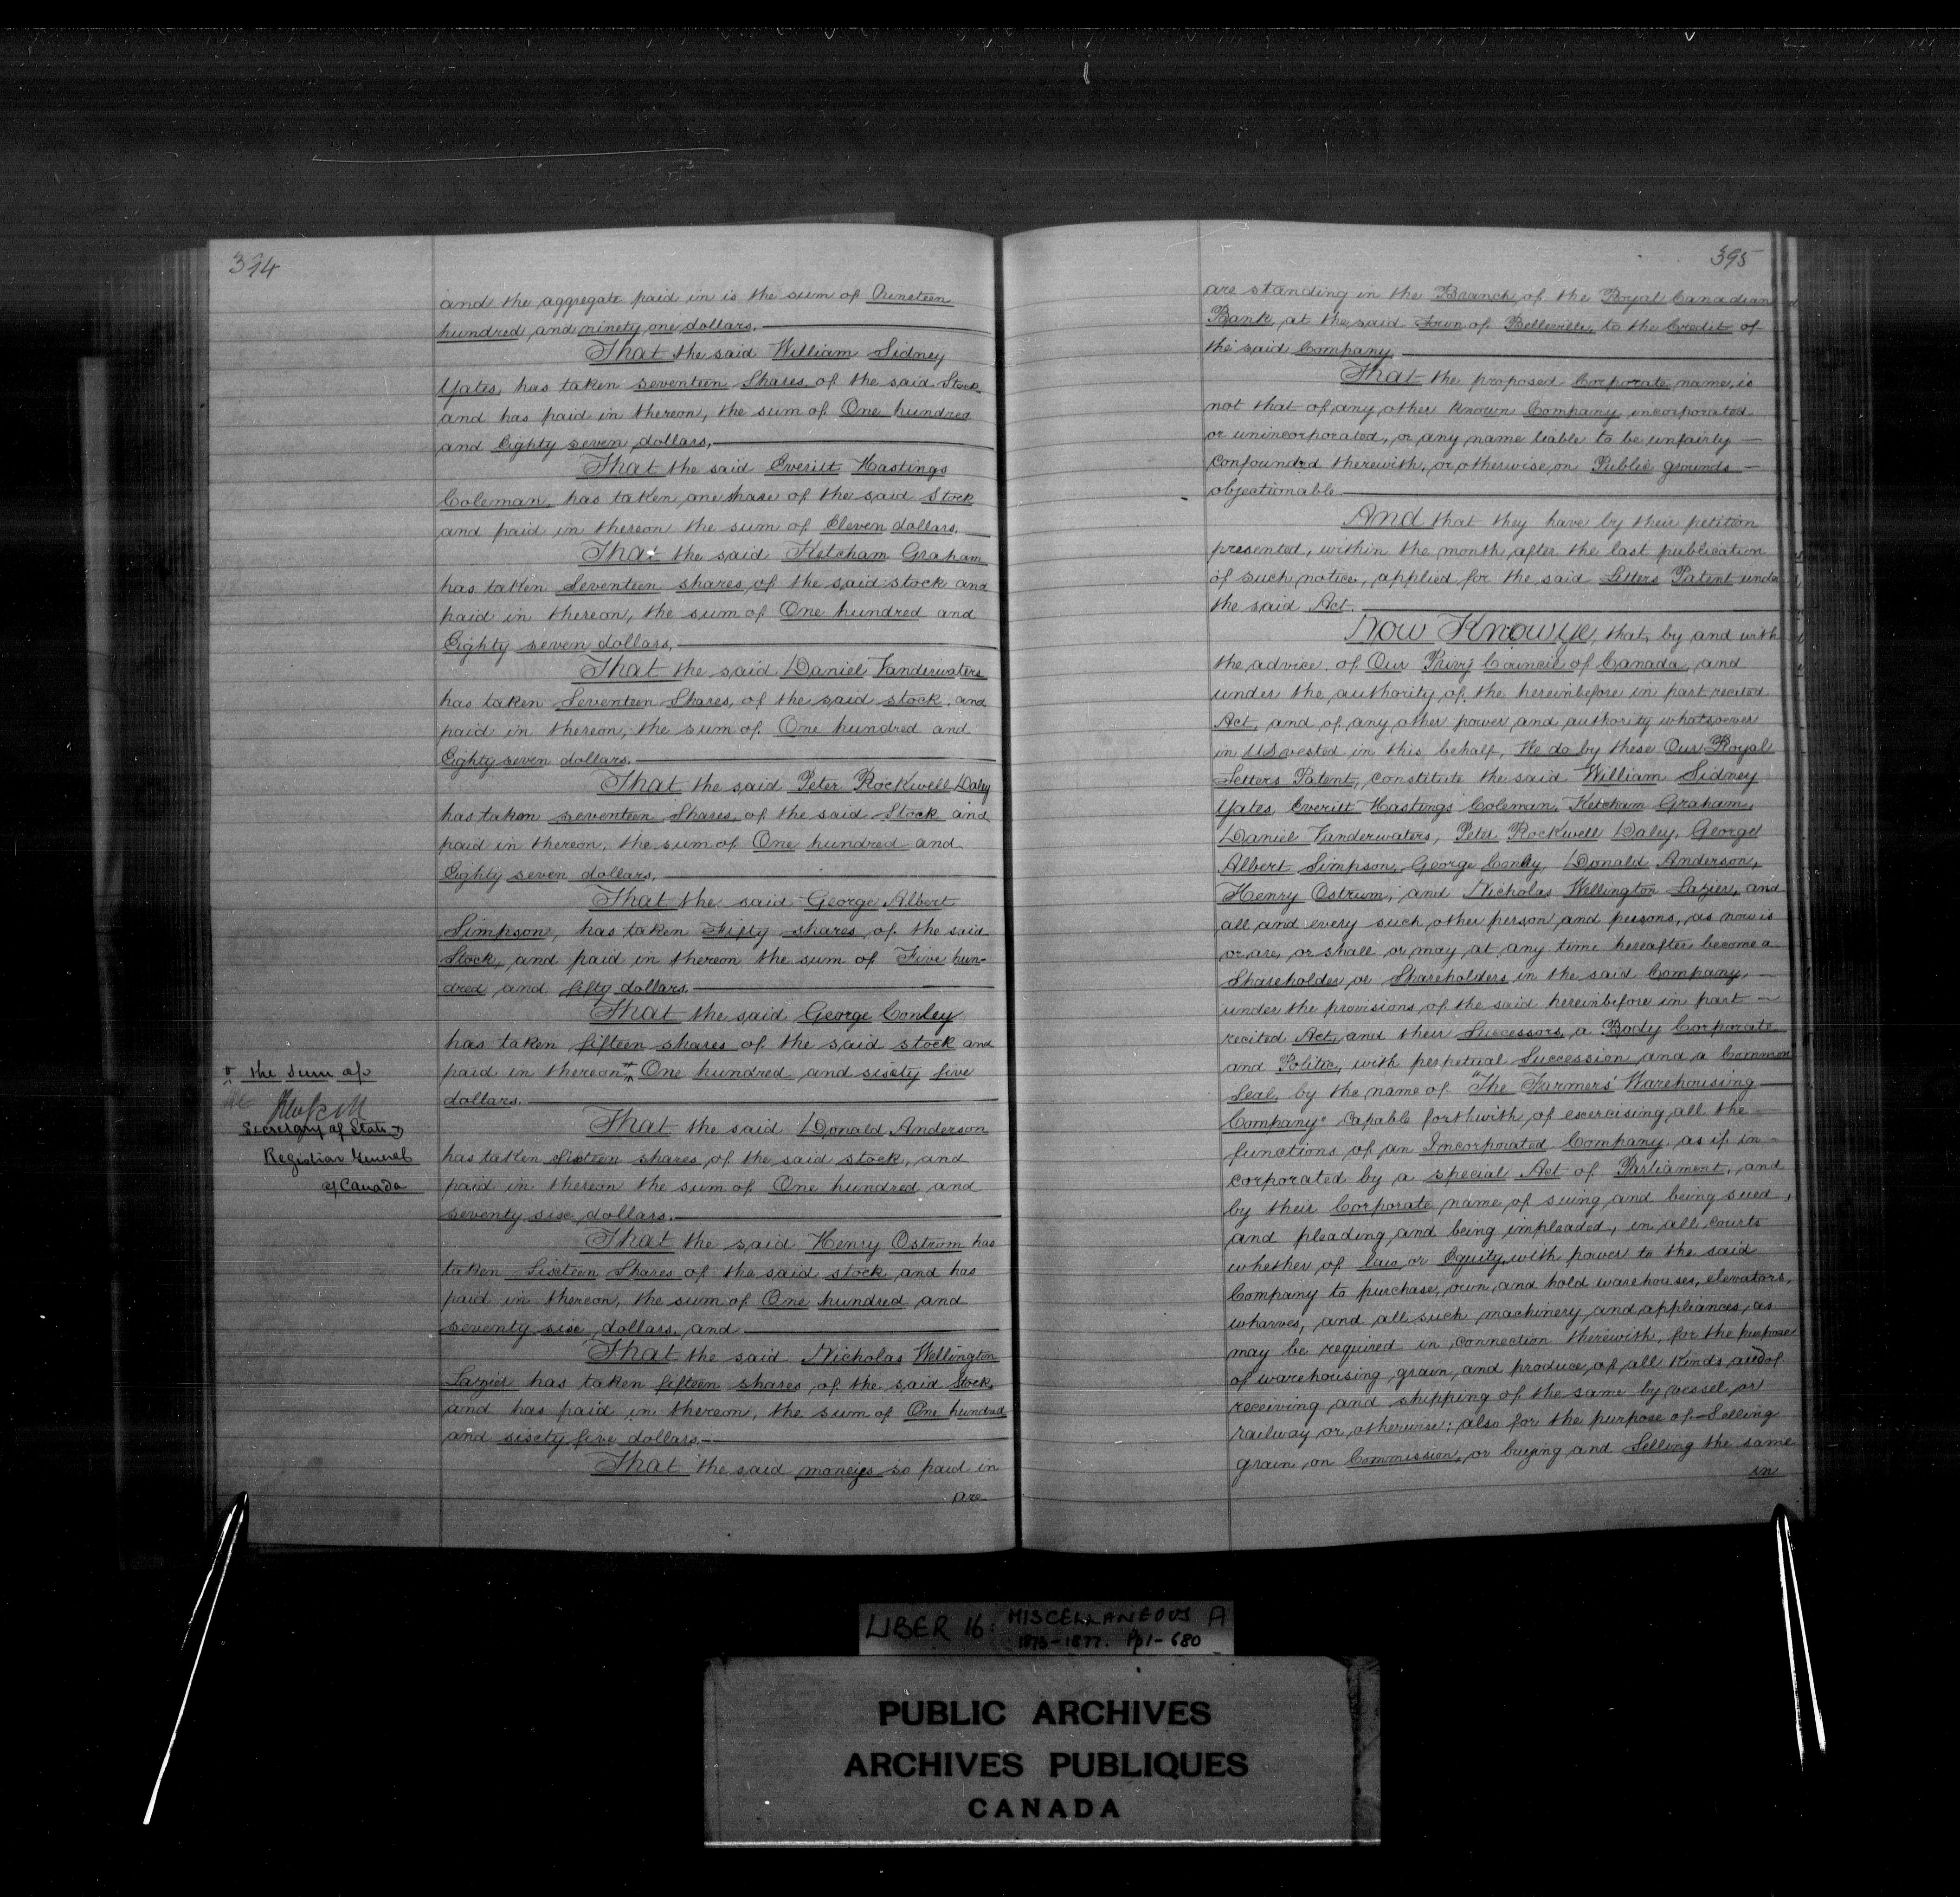 394
and the aggregate paid in is the sum of Nineteen
hundred and ninety one dollars.
That the said William Sidney
Yates, has taken seventeen Shares, of the said Stock
and has paid in thereon, the sum of One hundred
and Eighty seven dollars,
That the said Everitt Hastings
Coleman, has taken one share of the said Stock
and paid in thereon the sum of Eleven dollars.
That the said Ketcham Graham
has taken Seventeen shares, of the said stock and
paid in thereon, the sum of One hundred and
Eighty seven dollars.
That the said Daniel Vanderwaters
has taken Seventeen Shares, of the said stock, and
paid in thereon, the sum of One hundred and
Eighty seven dollars.
That the said Peter Rockwell Daley
has taken seventeen Shares, of the said Stock and
paid in thereon, the sum of One hundred and
Eighty seven dollars.
That the said George Albert
Simpson, has taken Fifty shares, of the said
Stock, and paid in thereon the sum of Five hun-
dred and fifty dollars.
That the said George Conley
has taken fifteen shares of the said stock and
paid in thereon One hundred and sixty five
dollars.
That the said Donald Anderson
has taken Sixteen shares, of the said stock, and
paid in thereon the sum of One hundred and
seventy six dollars.
That the said Henry Ostrom has
taken Sixteen Shares of the said stock, and has
paid in thereon, the sum of One hundred and
seventy six dollars, and
That the said Nicholas Wellington
Lazier has taken fifteen shares, of the said Stock,
and has paid in thereon, the sum of One hundred
and sixty five dollars.
That the said moneys so paid in
are
the sum of
Secretary of State &
Registrar General
of Canada
395
are standing in the Branch, of the Royal Canadian
Bank, at the said Town of Belleville, to the Credit of
the said Company
That the proposed Corporate name, is
not that of any other known Company, incorporated
or unincorporated, or any name liable to be unfairly
confounded therewith, or otherwise, on Public grounds
objectionable
And that they have by their petition
presented, within the month after the last publication
of such notice, applied for the said Letters Patent under
the said Act.
Now Know ye, that, by and with
the advice of Our Privy Council of Canada, and
under the authority of the hereinbefore in part recited
Act, and of any other power and authority whatsoever
in Us vested in this behalf, We do by these Our Royal
Letters Patent, constitute the said William Sidney
Yates, Everitt Hastings Coleman, Ketcham Graham,
Daniel Vanderwaters, Peter Rockwell Daley, George
Albert Simpson, George Conley, Donald Anderson,
Henry Ostrum, and Nicholas Wellington Lazier, and
all and every such other person and persons, as now is
or are, or shall or may at any time hereafter become a
Shareholder, or Shareholders in the said Company,
under the provisions, of the said hereinbefore in part
recited Act, and their Successors, a Body Corporate
and Politic, with perpetual Succession and a Common
Seal, by the name of "The Farmers' Warehousing
Company" Capable forthwith, of exercising all the
functions of an Incorporated Company, as if in-
corporated by a special Act of Parliament, and
by their Corporate name of suing and being sued,
and pleading and being impleaded, in all courts
whether of law, or Equity, with power to the said
Company to purchase, own, and hold warehouses, elevators,
wharves, and all such machinery and appliances, as
may be required in connection therewith, for the purpose
of warehousing grain, and produce of all kinds, and of
receiving and shipping of the same by vessel, or
railway or otherwise; also for the purpose of Selling
grain, on Commission, or buying and Selling the same
in
LIBER 16: MISCELLANEOUS A
1873-1877. Pp 1-680
PUBLIC ARCHIVES
ARCHIVES PUBLIQUES
CANADA